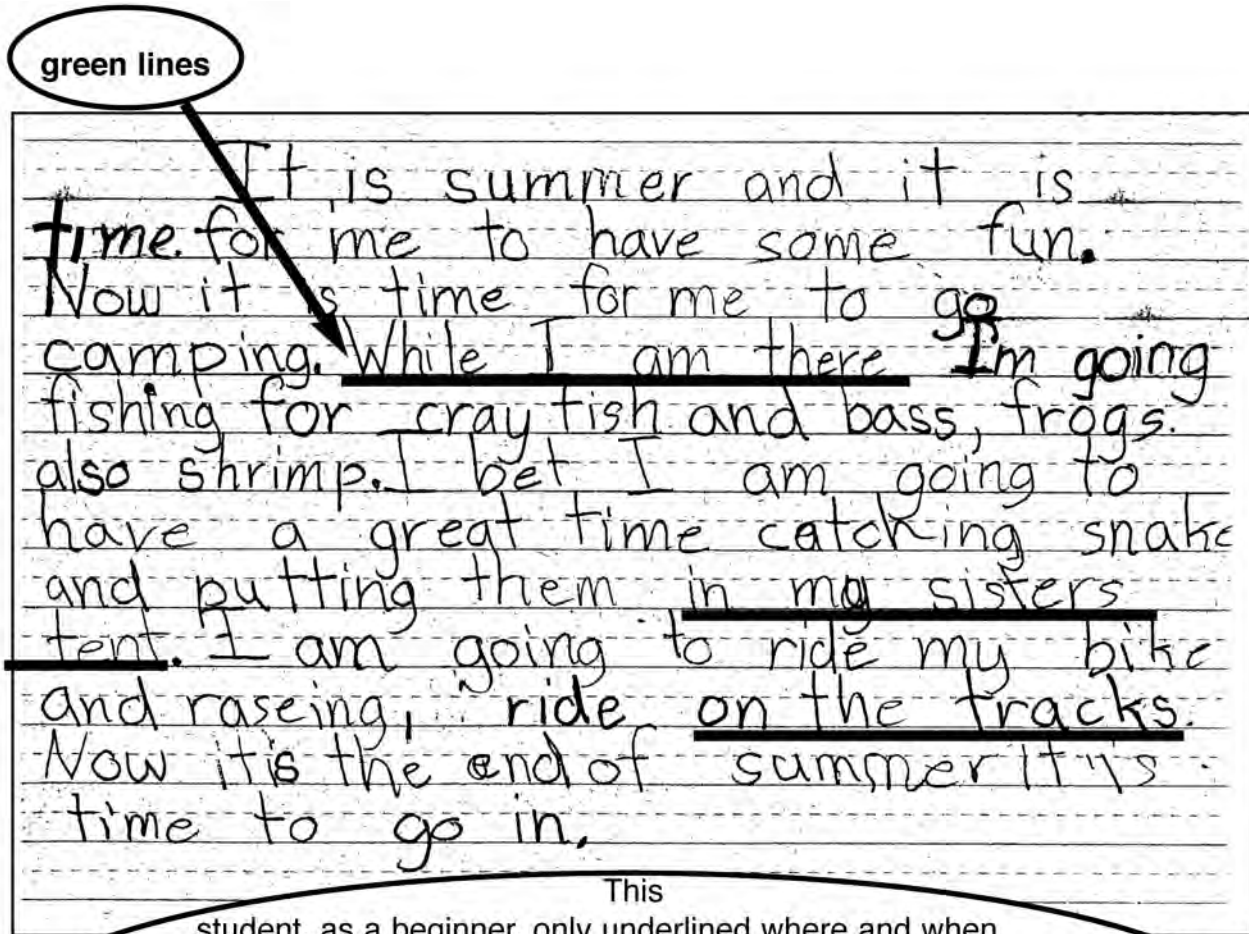 green lines
It is summer and it is
time. for me to have some fun.
Now it is time for me to go
camping. While I am there I'm going
fishing for crayfish and bass, frogs.
also shrimp. I bet I am going to
have a great time catching snake
and putting them in my sisters
tent. I am going to ride my bike
and raseing, ride on the tracks.
Now it is the end of summer It is
time to go in.
This
student, as a beginner, only underlined where and when